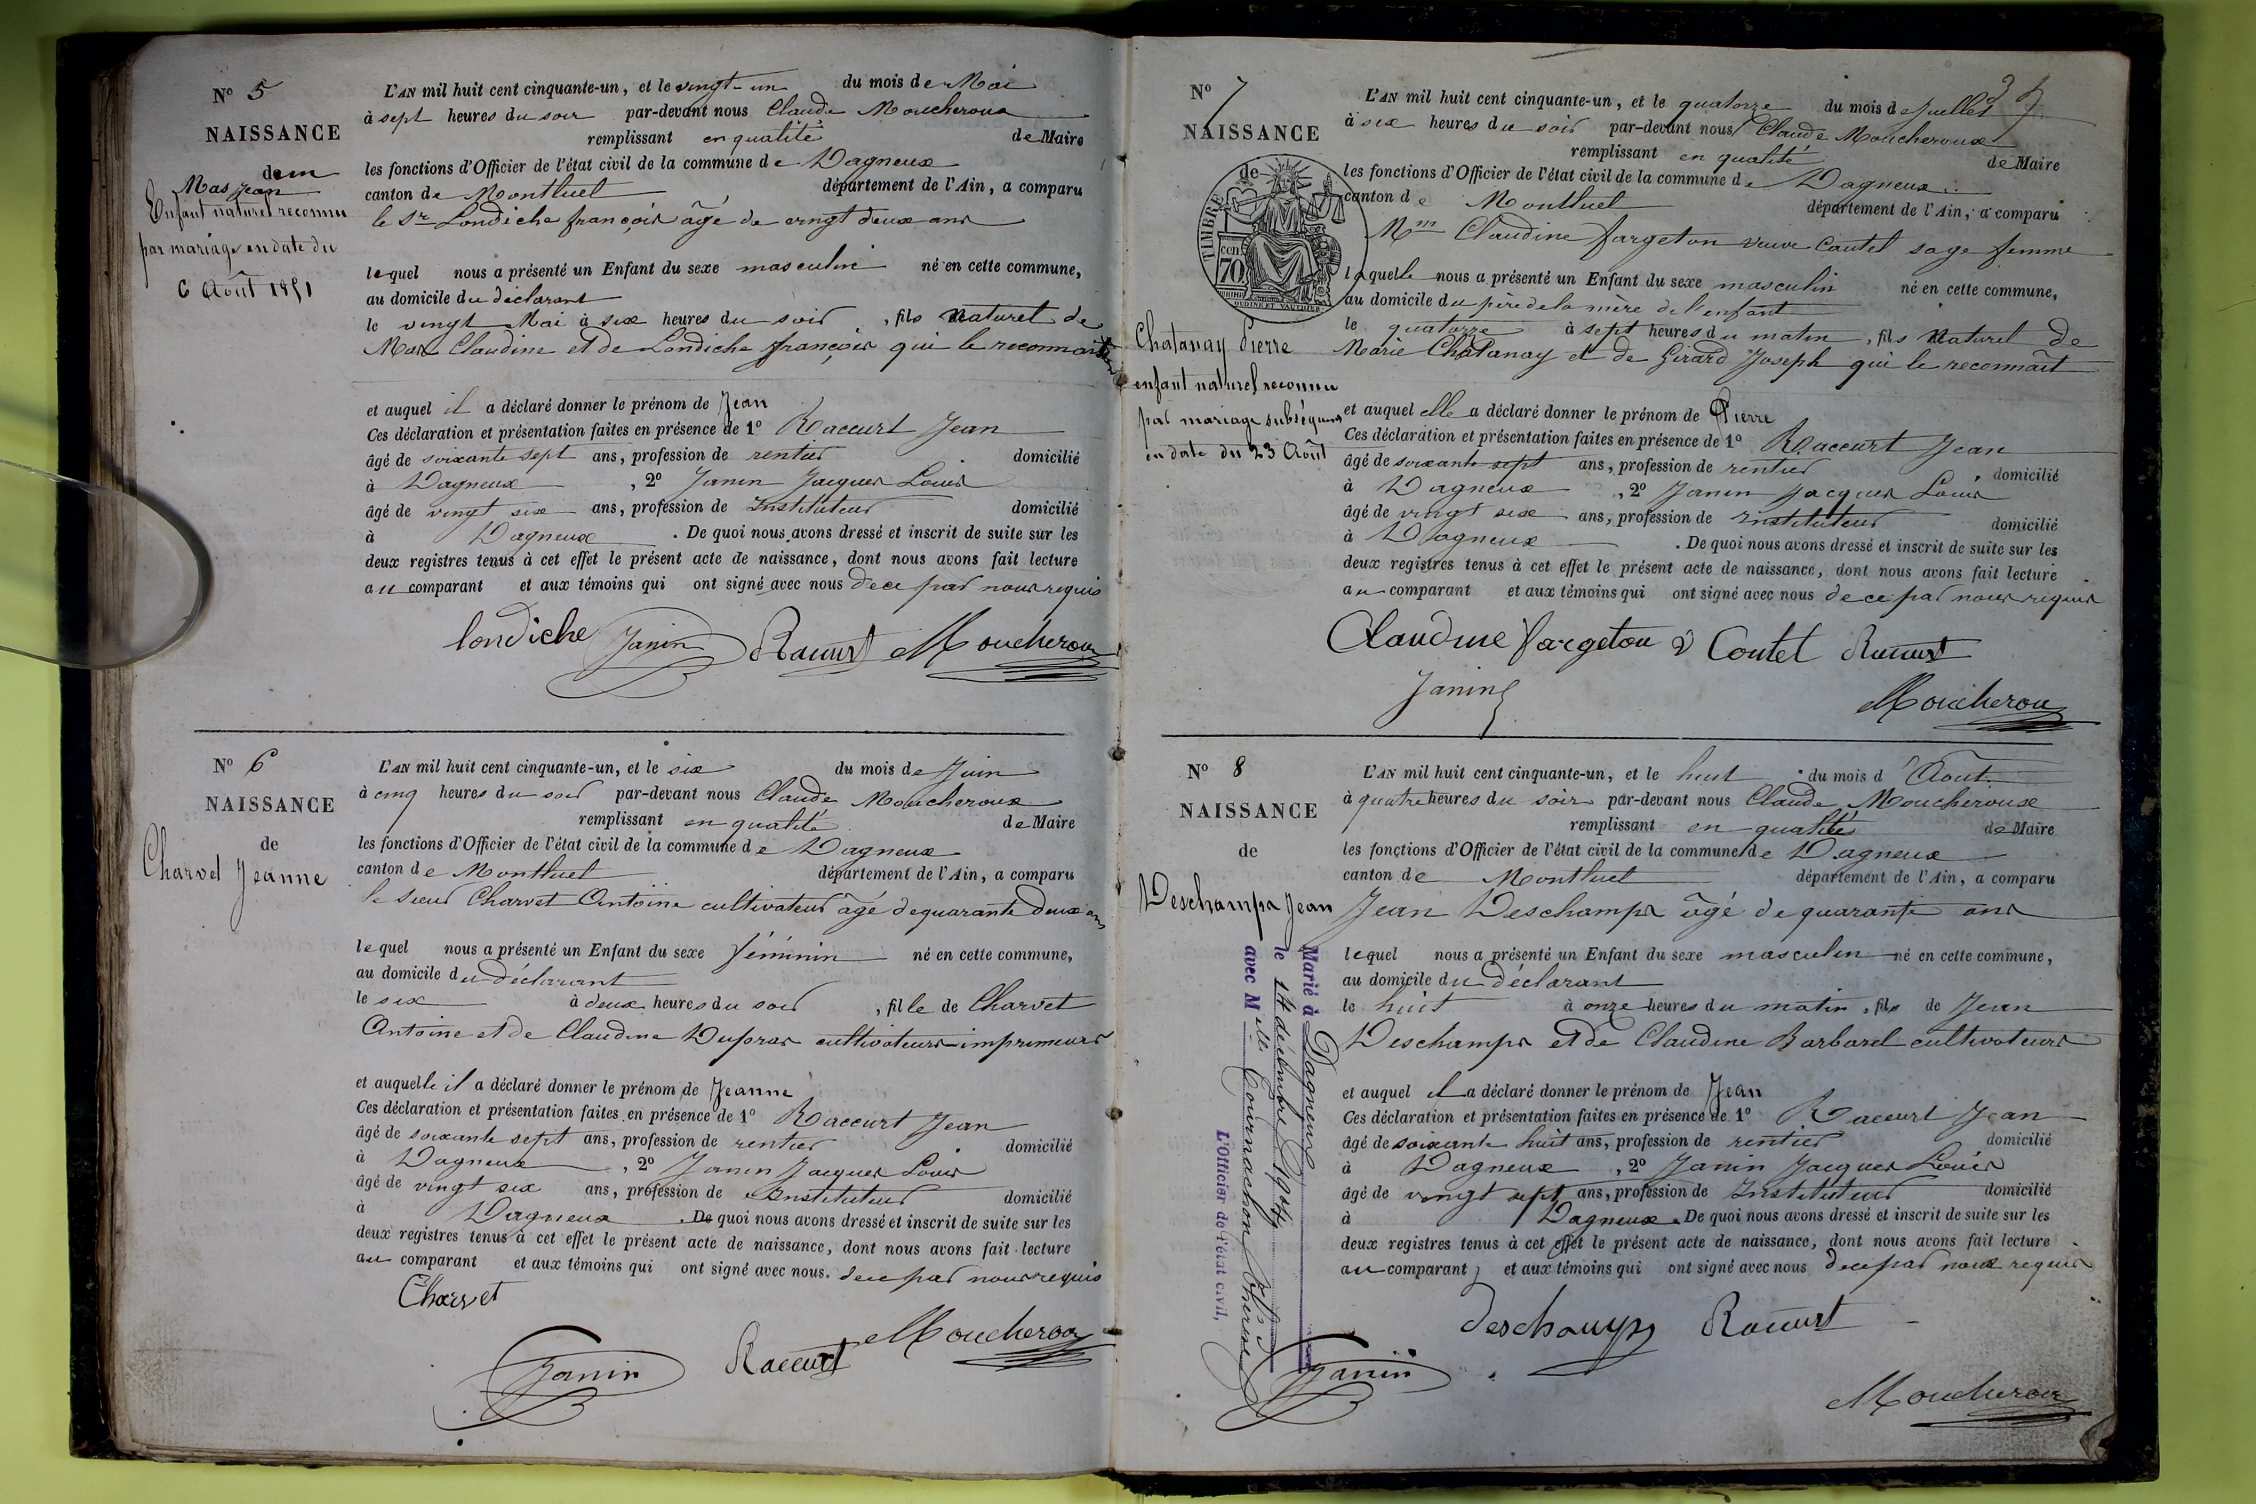 N° 5
NAISSANCE
de
Mas Jean
Enfant naturel reconnu
par mariage en date du
6 Août 1851
L'AN mil huit cent cinquante-un, et le vingt-un du mois de Mai
à sept heures du soir par-devant nous Claude Moucheroux
remplissant en qualité de Maire
les fonctions d'Officier de l'état civil de la commune de Dagneux
canton de Montluel département de l'Ain, a comparu
le Sr Londiche françois âgé de vingt deux ans
lequel nous a présenté un Enfant du sexe masculin né en cette commune,
au domicile du déclarant
le vingt Mai à six heures du soir, fils Naturel de
Mas Claudine et de Londiche françois qui le reconnait
et auquel il a déclaré donner le prénom de Jean
Ces déclaration et présentation faites en présence de 1° Raccurt Jean
âgé de soixante sept ans, profession de rentier domicilié
à Dagneux, 2° Janin Jacques Louis
âgé de vingt six ans, profession de Instituteur domicilié
à Dagneux. De quoi nous avons dressé et inscrit de suite sur les
deux registres tenus à cet effet le présent acte de naissance, dont nous avons fait lecture
au comparant et aux témoins qui ont signé avec nous de ce par nous requis
londiche Janin Raccurt Moucheroux
N° 6
NAISSANCE
de
Charvet Jeanne
L'AN mil huit cent cinquante-un, et le six du mois de Juin
à cinq heures du soir par-devant nous Claude Moucheroux
remplissant en qualité de Maire
les fonctions d'Officier de l'état civil de la commune de Dagneux
canton de Montluel département de l'Ain, a comparu
le sieur Charvet Antoine cultivateur âgé de quarante deux ans
lequel nous a présenté un Enfant du sexe féminin né en cette commune,
au domicile du déclarant
le six à deux heures du soir, fille de Charvet
Antoine et de Claudine Dupras cultivateurs imprimeurs
et auquelle il a déclaré donner le prénom de Jeanne
Ces déclaration et présentation faites en présence de 1° Raccurt Jean
âgé de soixante sept ans, profession de rentier domicilié
à Dagneux, 2° Janin Jacques Louis
âgé de vingt six ans, profession de Instituteur domicilié
à Dagneux. De quoi nous avons dressé et inscrit de suite sur les
deux registres tenus à cet effet le présent acte de naissance, dont nous avons fait lecture
au comparant et aux témoins qui ont signé avec nous. de ce par nous requis
Charvet
Janin Raccurt Moucheroux
N° 7
NAISSANCE
de
TIMBRE
70
Chatanay Pierre
enfant naturel reconnu
par mariage subséquent
en date du 23 Août
L'AN mil huit cent cinquante-un, et le quatorze du mois de Juillet
à six heures du soir par-devant nous Claude Moucheroux
remplissant en qualité de Maire
les fonctions d'Officier de l'état civil de la commune de Dagneux
canton de Montluel département de l'Ain, a comparu
Mm Claudine fargeton veuve Coutel sage femme
laquelle nous a présenté un Enfant du sexe masculin né en cette commune,
au domicile du père de la mère de l'enfant
le quatorze à sept heures du matin, fils Naturel de
Marie Chatanay et de Girard Joseph qui le reconnait
et auquel elle a déclaré donner le prénom de Pierre
Ces déclaration et présentation faites en présence de 1° Raccurt Jean
âgé de soixante sept ans, profession de rentier domicilié
à Dagneux, 2° Janin Jacques Louis
âgé de vingt six ans, profession de Instituteur domicilié
à Dagneux. De quoi nous avons dressé et inscrit de suite sur les
deux registres tenus à cet effet le présent acte de naissance, dont nous avons fait lecture
au comparant et aux témoins qui ont signé avec nous de ce par nous requis
Claudine fargeton v Coutel Raccurt
Janin
Moucheroux
N° 8
NAISSANCE
de
Deschamps Jean
Marié à Dagneux
le 14 décembre
avec M
L'Officier de l'état civil,
L'AN mil huit cent cinquante-un, et le huit du mois d'Août
à quatre heures du soir par-devant nous Claude Moucheroux
remplissant en qualité de Maire
les fonctions d'Officier de l'état civil de la commune de Dagneux
canton de Montluel département de l'Ain, a comparu
Jean Deschamps âgé de quarante ans
lequel nous a présenté un Enfant du sexe masculin né en cette commune,
au domicile du déclarant
le huit à onze heures du matin, fils de Jean
Deschamps et de Claudine Barbarel cultivateurs
et auquel il a déclaré donner le prénom de Jean
Ces déclaration et présentation faites en présence de 1° Raccurt Jean
âgé de soixante huit ans, profession de rentier domicilié
à Dagneux, 2° Janin Jacques Louis
âgé de vingt sept ans, profession de Instituteur domicilié
à Dagneux. De quoi nous avons dressé et inscrit de suite sur les
deux registres tenus à cet effet le présent acte de naissance, dont nous avons fait lecture
au comparant, et aux témoins qui ont signé avec nous de ce par nous requis
deschamps Raccurt
Janin
Moucheroux